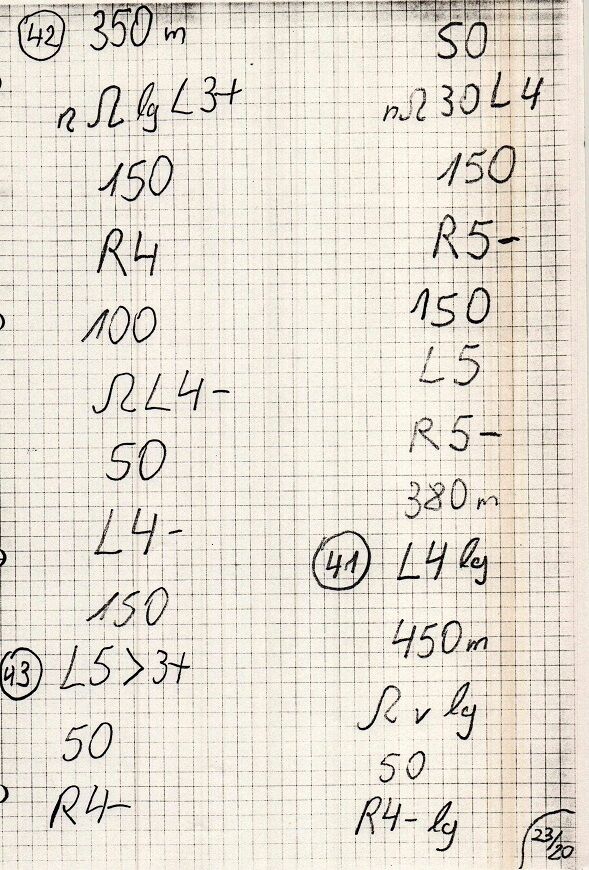 42 350 m
n Ω lg L3+
150
R4
100
Ω L4-
50
L4-
150
43 L5 > 3+
50
R4-
50
nΩ 30 L4
150
R5-
150
L5
R5-
380 m
41 L4 lg
450 m
Ω v lg
50
R4- lg
23/20